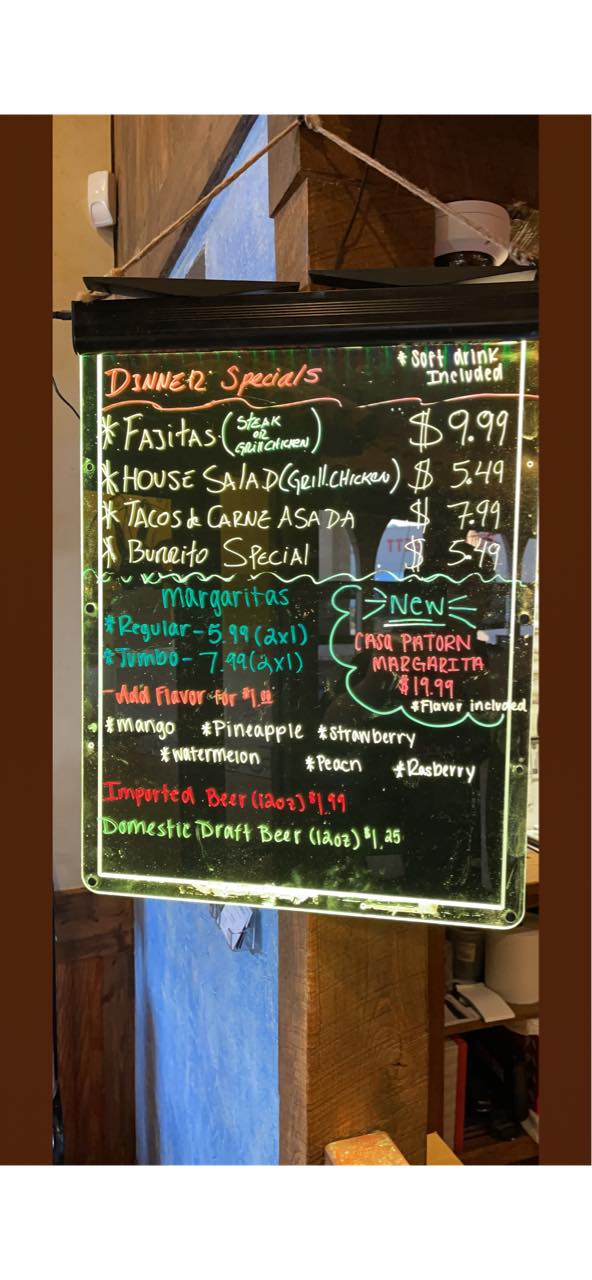 * Soft drink
Included
DINNER Specials
* FAJITAS (STEAK OR GRILL CHICKEN) $ 9.99
* HOUSE SALAD (GRILL.CHICKEN) $ 5.49
* TACOS de CARNE ASADA $ 7.99
* Burrito SPECIAL $ 5.49
margaritas
* Regular - 5.99 (2x1)
* Jumbo - 7.99 (2x1)
- Add Flavor for $1.00
NEW
CASA PATORN
MARGARITA
$19.99
*Flavor included
*mango *Pineapple *Strawberry
*watermelon *Peach *Rasberry
Imported Beer (12oz) $1.99
Domestic Draft Beer (12oz) $1.25